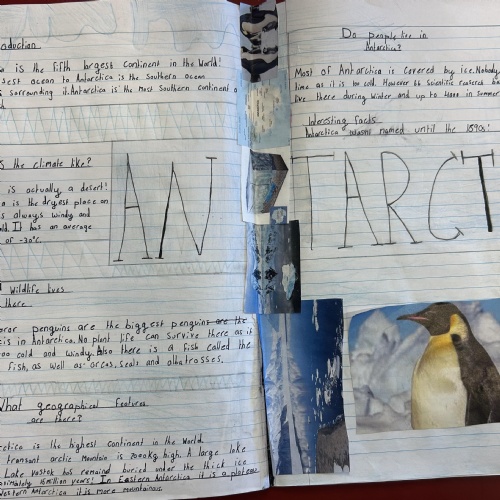 oduction
a is the fifth largest continent in the World!
sest ocean to Antarctica is the Southern ocean
s sorrounding it. Antarctica is the most Southern continent o
d.
s the climate like?
is actually a desert!
a is the dryest place on
s always windy and
ld. It has an average
of -30°C.
AN
Wildlife lives
there
eror penguins are the biggest penguins are the
cis in Antarctica. No plant life can survive there as it
oo cold and windy. Also there is a fish called the
Fish, as well as: orcas, seals and albatrosses.
What geographical features
are there?
rctica is the highest continent in the World
transant arctic Mountain is 2000kg high. A large lake
Lake Vostok has remained buried under the thick ice
oximately 15 million years! In Eastern Antarctica it is a plateau
Western Antarctica it is more mountainous.
Do people live in
Antarctica?
Most of Antarctica is covered by ice. Nobody
time as it is to cold. However 66 scientific reaserch ba
live there during winter and up to 4000 in summer
Interesting facts
Antarctica wasns named until the 1890s!
TARCT